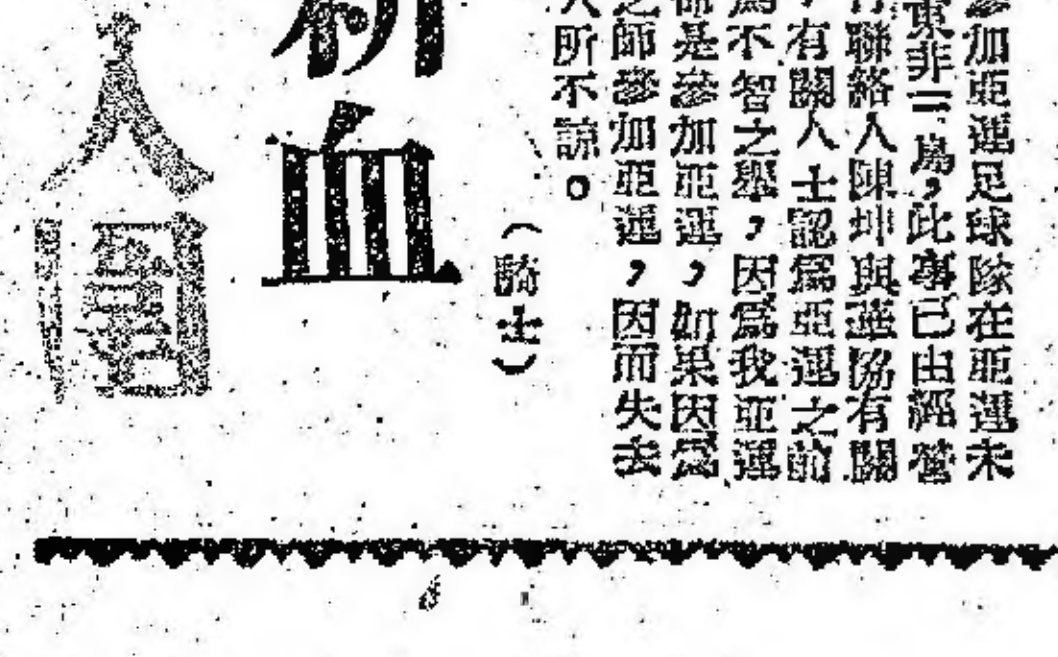 參加亞運足球隊在亞運未
東非三島，此事已由經營
聯絡人陳坤與華協有關
，有關人士認爲亞運之前
爲不智之舉，因爲我亞運
是參加亞運，如果因爲
之師參加亞運，因而失去
人所不諒。
（騎士）
新血
人圍